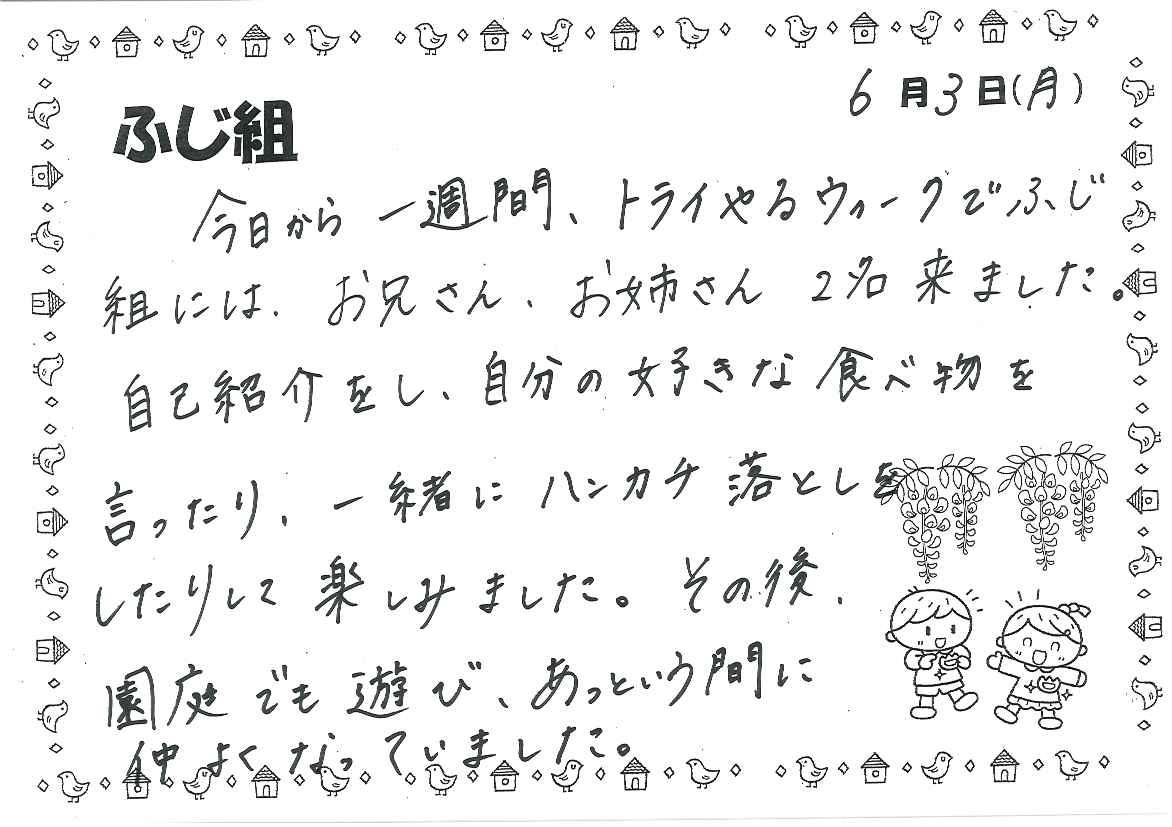 6月3日(月)
ふじ組
今日から一週間、トライやるウィークでふじ
組には、お兄さん、お姉さん 2名来ました。
自己紹介をし、自分の好きな食べ物を
言ったり、一緒にハンカチ落としを
したりして楽しみました。その後、
園庭でも遊び、あっという間に
仲よくなっていました。